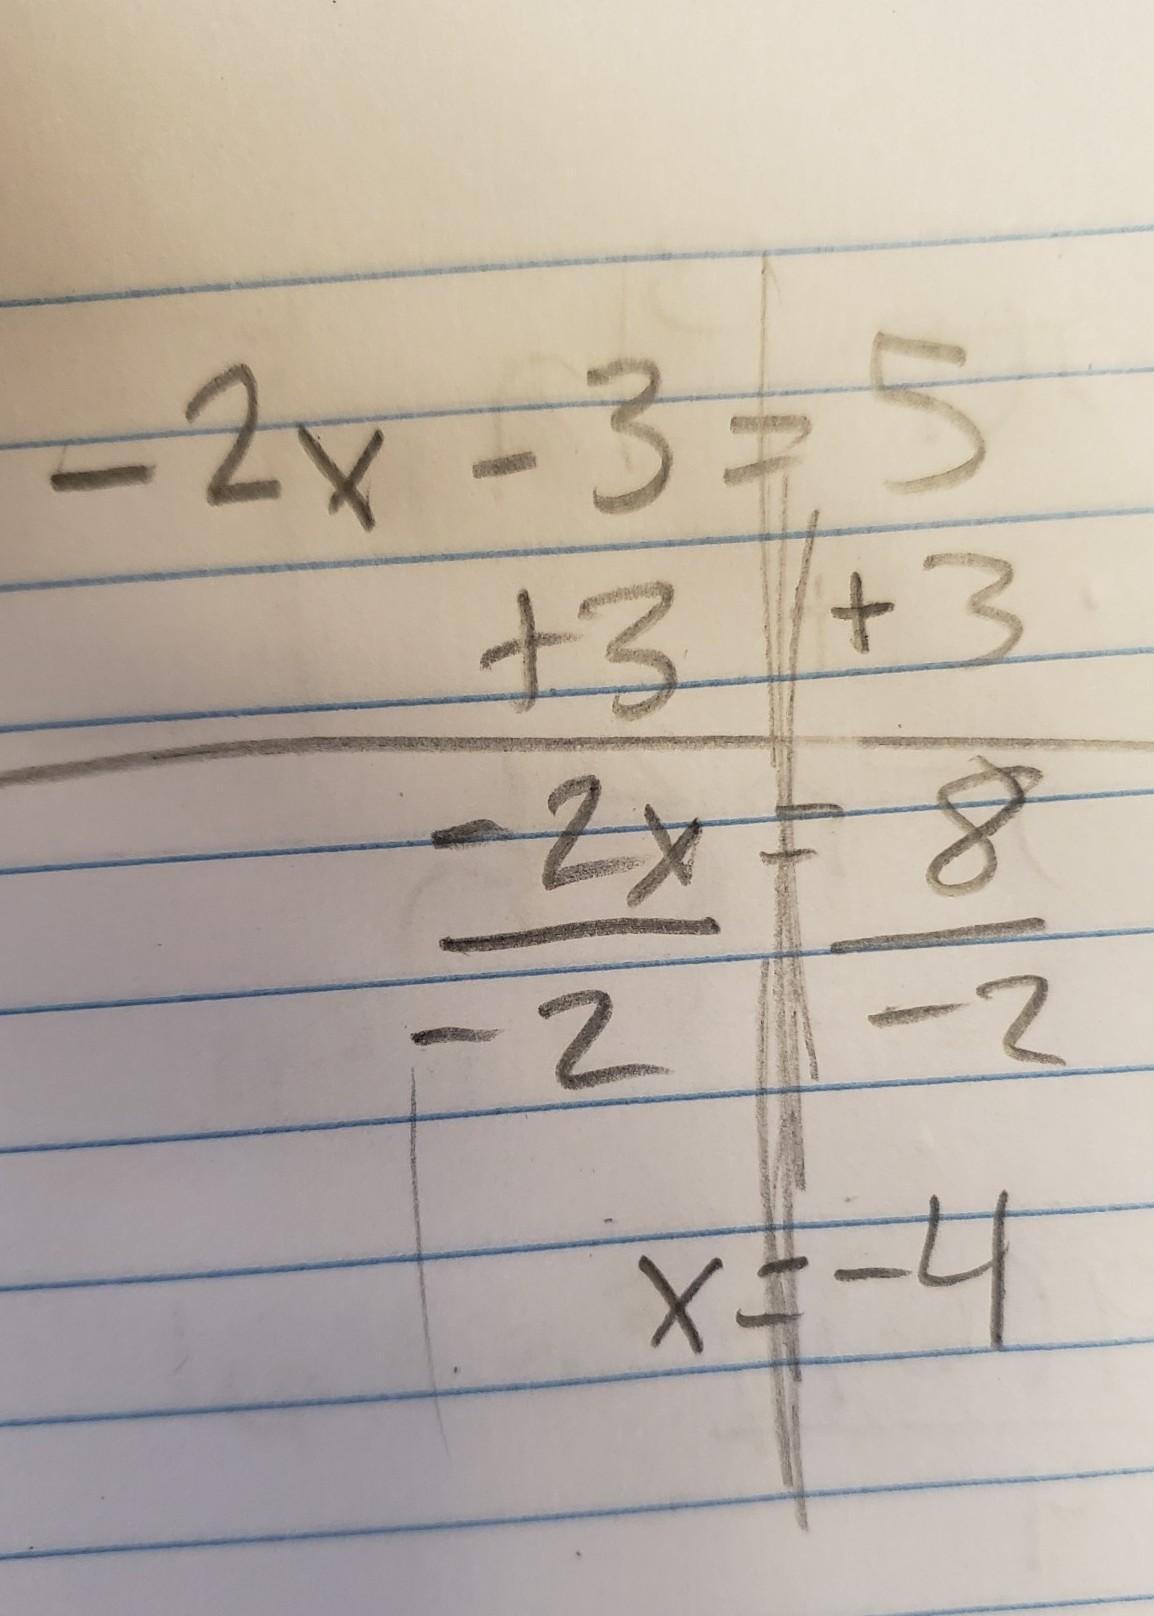 -2x - 3 = 5
+3 +3
-2x = 8
-2 -2
x = -4